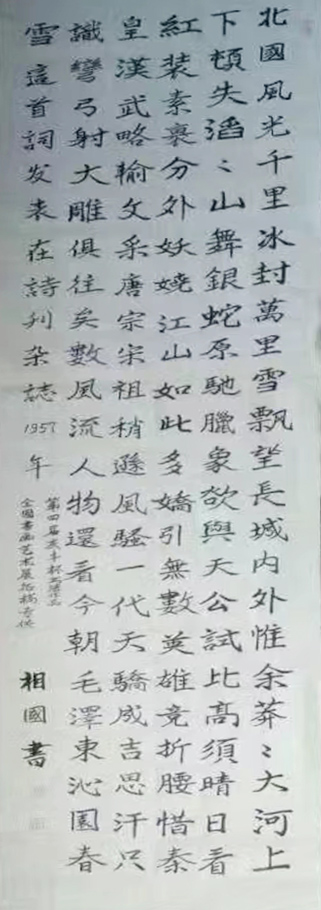 北國風光千里冰封萬里雪飄望長城内外惟余莽〻大河上
下頓失滔〻山舞銀蛇原馳臘象欲與天公試比高須晴日看
紅装素裹分外妖嬈江山如此多嬌引無數英雄竞折腰惜秦
皇漢武略輸文采唐宗宋祖稍遜風騷一代天驕成吉思汗只
識彎弓射大雕俱往矣數風流人物還看今朝毛澤東沁園春
雪這首詞发表在詩刋杂誌1957年
第四届
全國書画艺术展
相國書